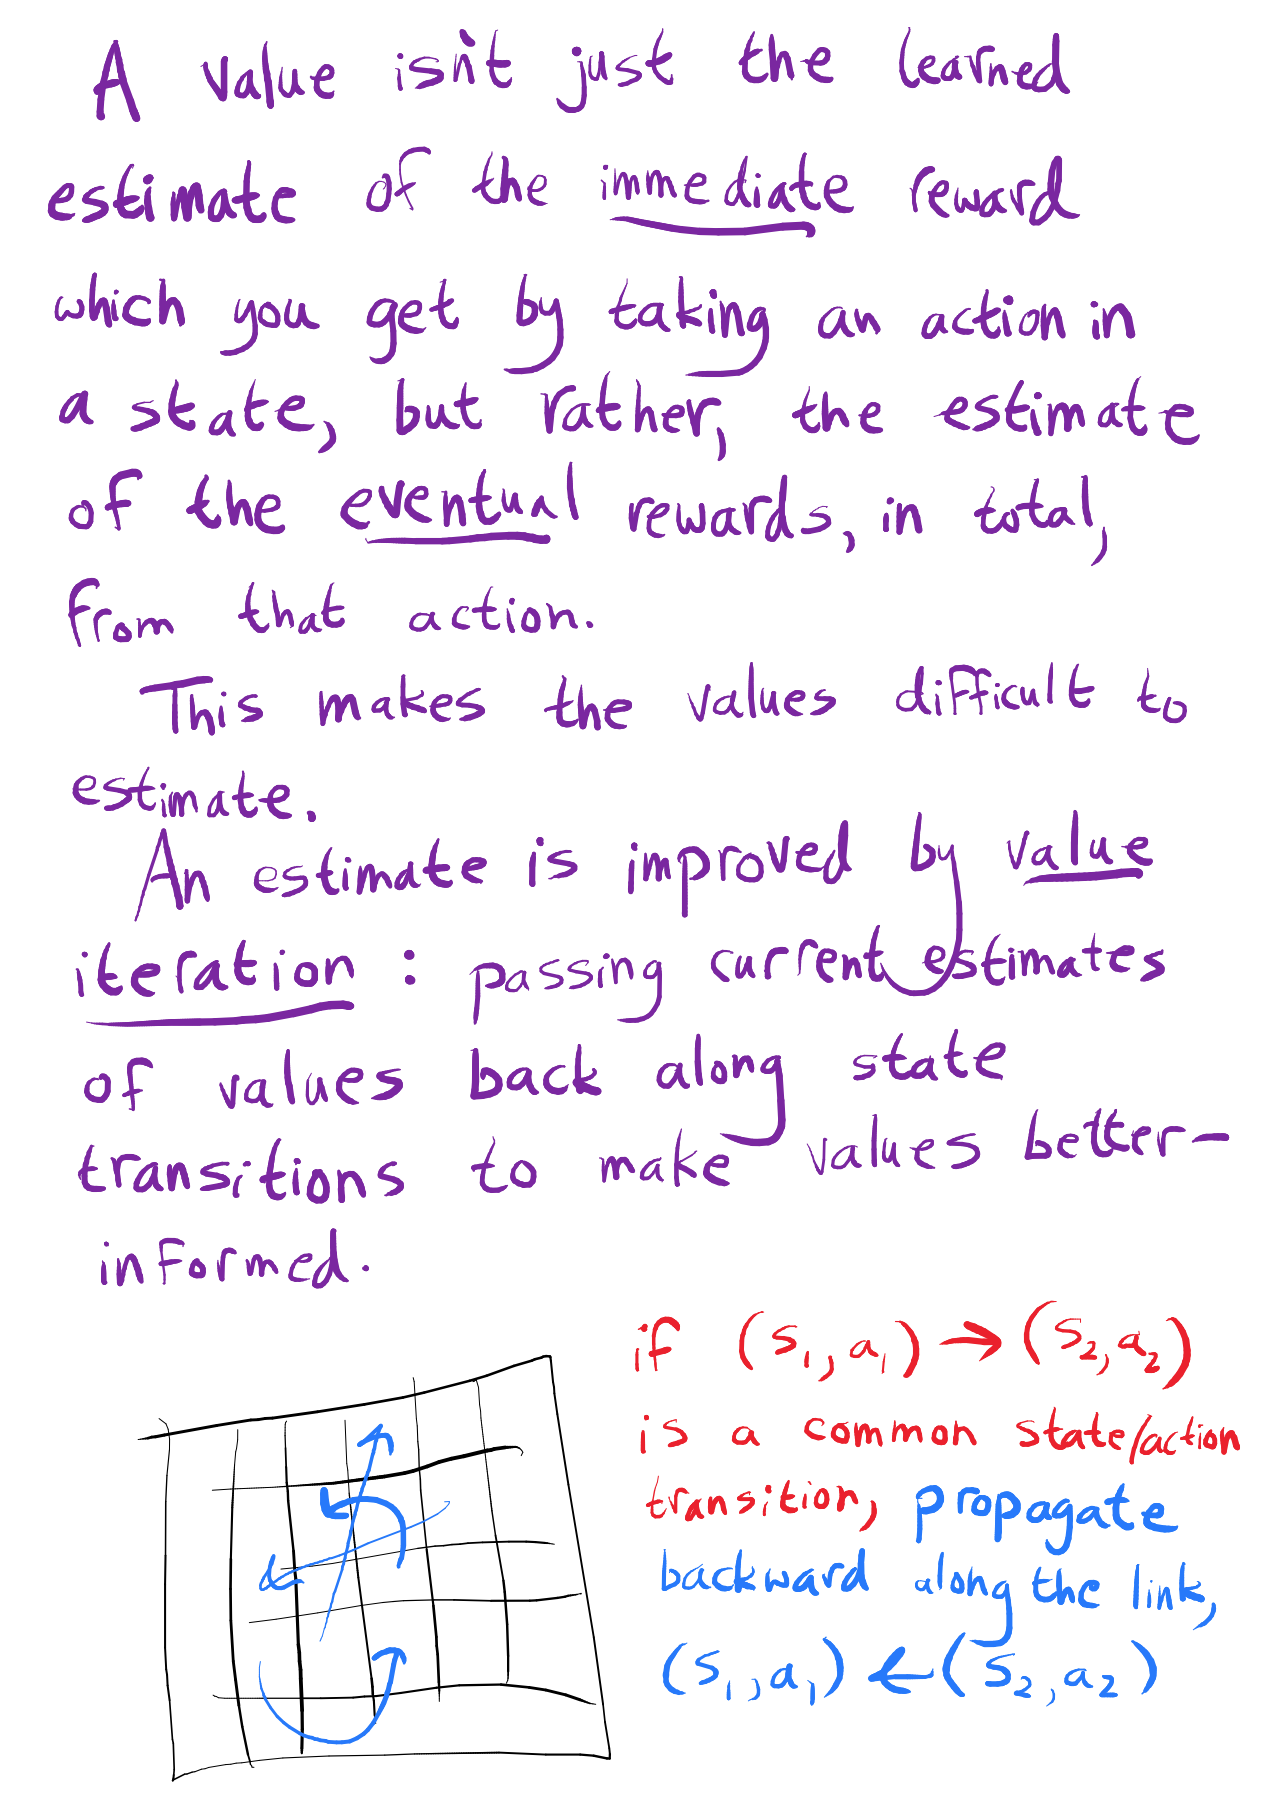 A value isn't just the learned
estimate of the immediate reward
which you get by taking an action in
a state, but rather, the estimate
of the eventual rewards, in total,
from that action.
This makes the values difficult to
estimate.
An estimate is improved by value
iteration: passing current estimates
of values back along state
transitions to make values better-
informed.
if (s₁, a₁) → (s₂, a₂)
is a common state/action
transition, propagate
backward along the link,
(s₁, a₁) ← (s₂, a₂)